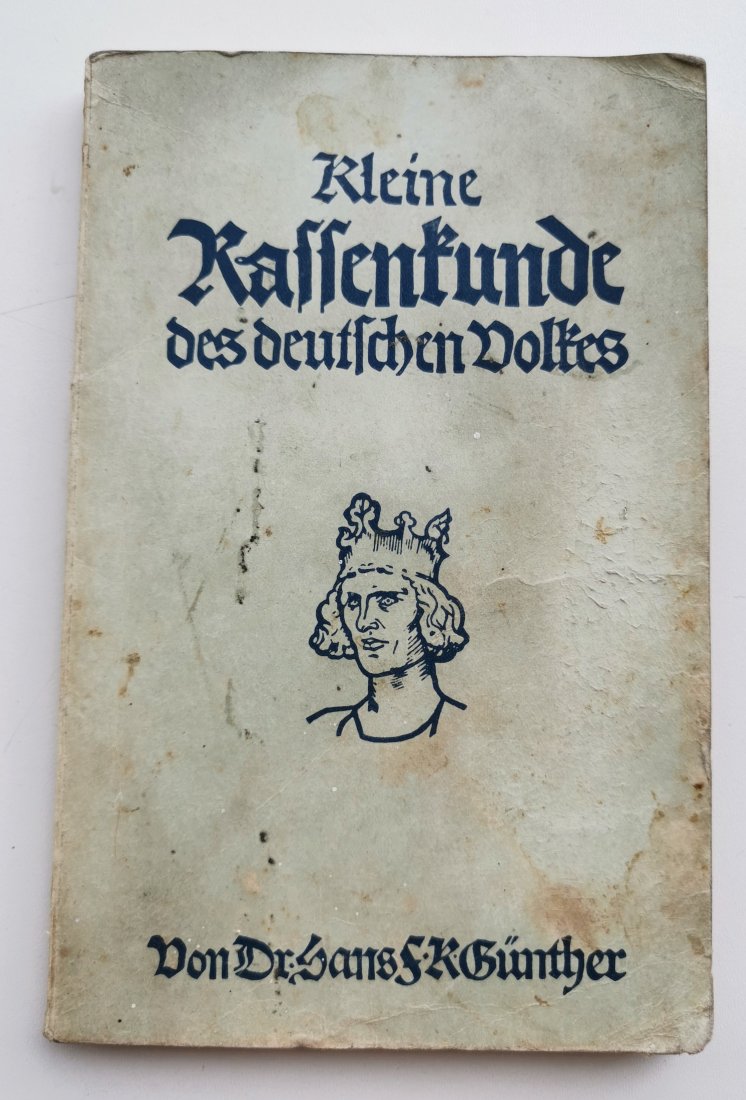 Kleine
Raſſenkunde
des deutſchen Volkes
Von Dr. Hans F. K. Günther